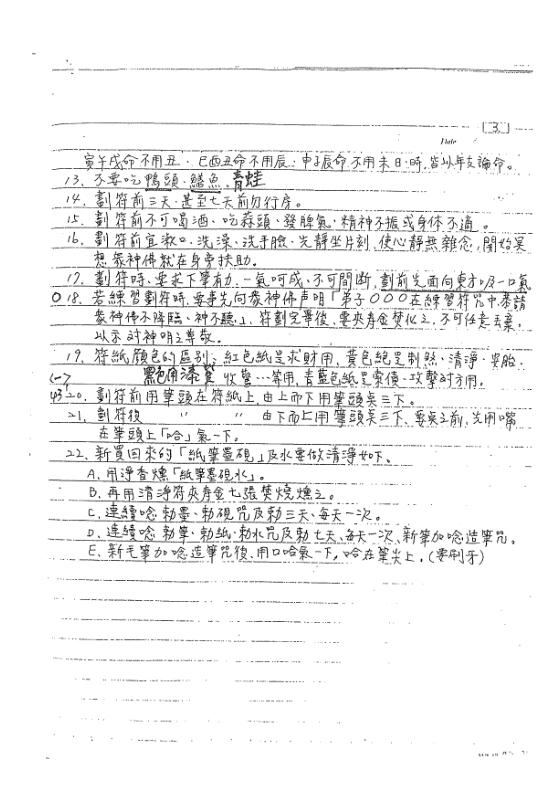 3
Date
寅午戌命不用丑、巳酉丑命不用辰、申子辰命不用未日、時、皆以年支論命。
13. 不要吃鴨頭、鱔魚、青蛙
14. 劃符前三天、甚至七天前勿行房。
15. 劃符前不可喝酒、吃蒜頭、發脾氣、精神不振或身体不適。
16. 劃符前宜漱口、洗澡、洗手臉、先靜坐片刻、使心靜無雜念,開始冥
想眾神佛就在身旁扶助。
17. 劃符時、要求下筆有力、一氣呵成、不可間斷,劃前先面向東方吸一口氣
〇18. 若練習劃符時、要事先向眾神佛声明「弟子〇〇〇在練習符咒中恭請
眾神佛不降臨、神不聽」、符劃完畢後、要夾寿金焚化之、不可任意丟棄,
以示对神明之尊敬。
19. 符紙顏色的區別:紅色紙是求財用、黃色紙是制煞、清淨、安胎、
收驚…等用,青藍色紙是索債、攻擊对方用。
20. 劃符前用筆頭在符紙上由上而下用筆頭敲三下。
21. 劃符後 〃 〃 由下而上用筆頭敲三下、要敲之前,先用嘴
在筆頭上「哈」氣一下。
22. 新買回來的「紙筆墨硯」及水要做清淨如下。
A. 用淨香燻「紙筆墨硯水」。
B. 再用清淨符夾寿金七張焚燒燻之。
C. 連續唸勅墨、勅硯咒及勅三天、每天一次。
D. 連續唸勅筆、勅紙、勅水咒及勅七天、每天一次、新筆加唸造筆咒。
E. 新毛筆加唸造筆咒後、用口哈氣一下,哈在筆尖上。(要刷牙)